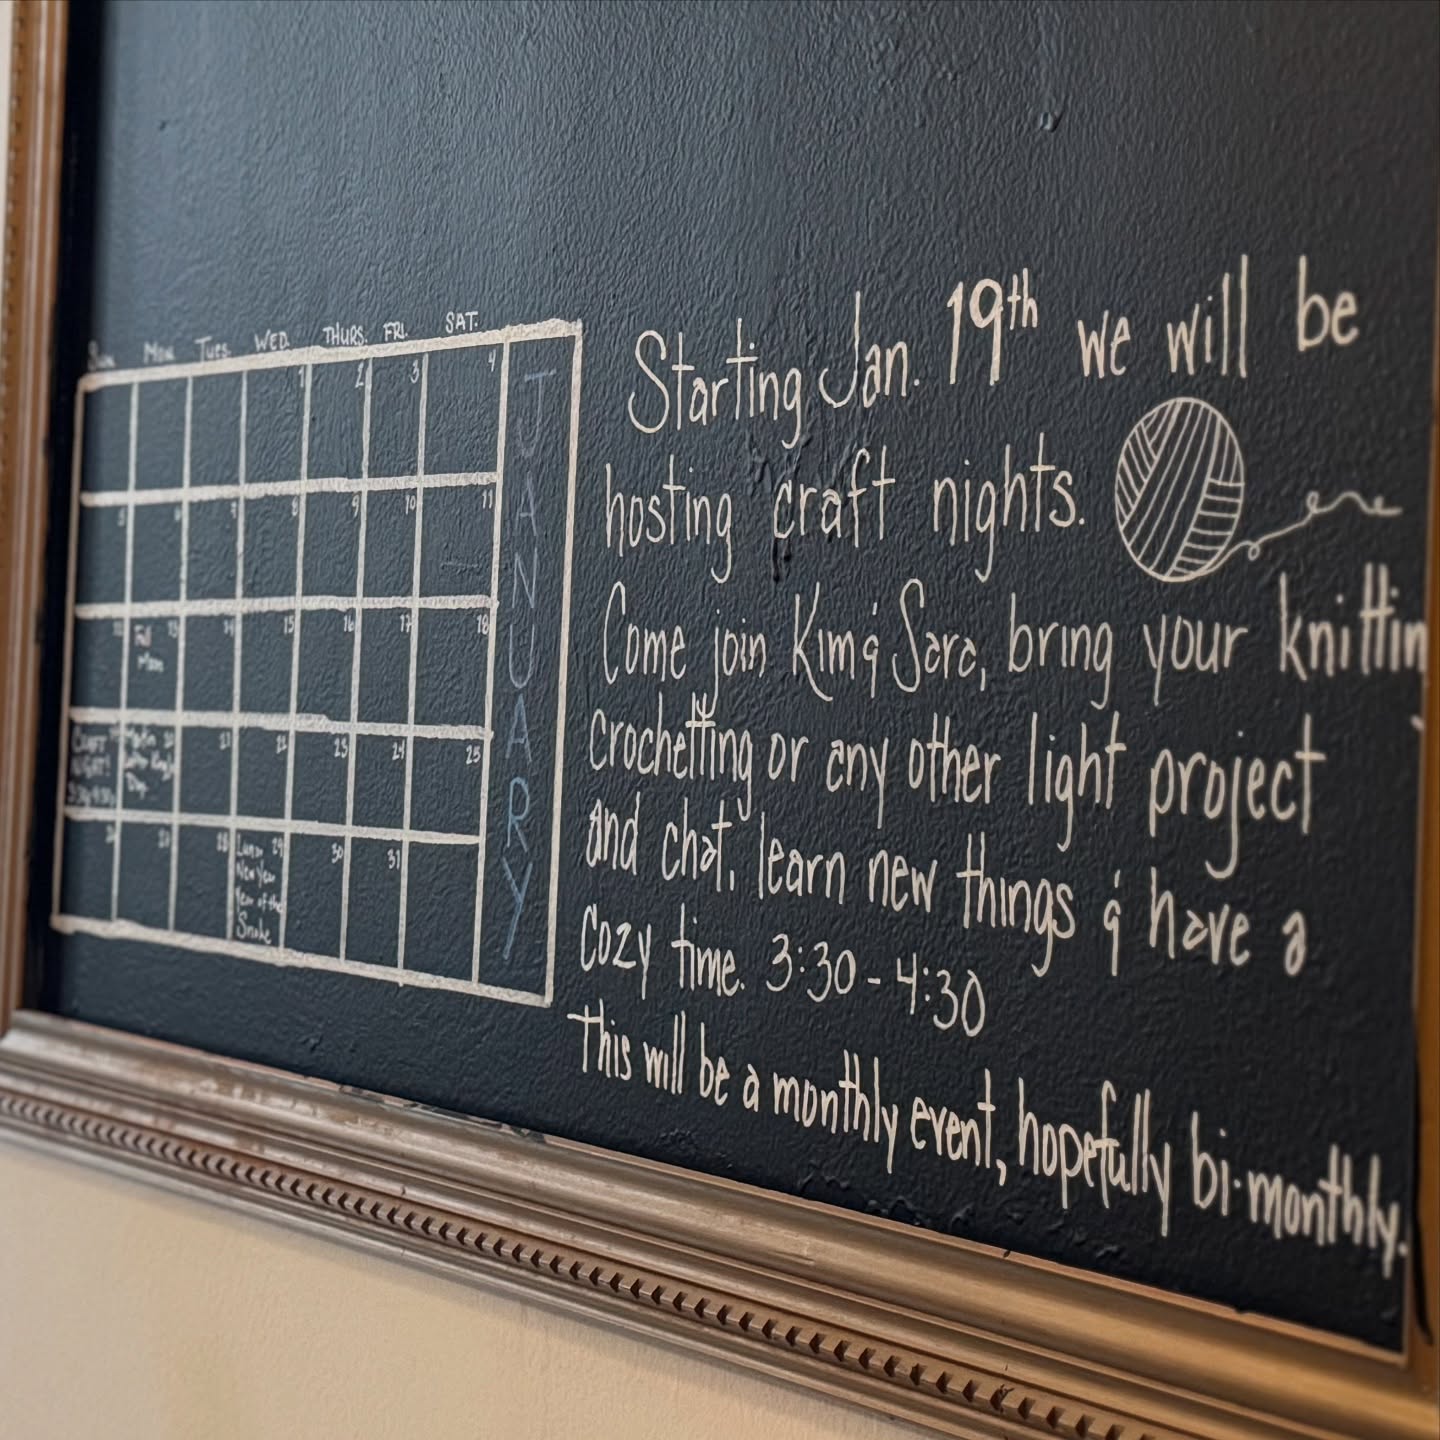 SUN MON TUES. WED. THURS. FRI. SAT.
1 2 3 4
5 6 7 8 9 10 11
12 13 14 15 16 17 18
Full
Moon
19 20 21 22 23 24 25
CRAFT
NIGHT!
3:30-4:30
Martin
Luther King Jr
Day
26 27 28 29 30 31
Lunar
New Year
Year of the
Snake
JANUARY
Starting Jan. 19th we will be
hosting craft nights.
Come join Kim & Sara, bring your knittin
crochetting or any other light project
and chat, learn new things & have a
cozy time. 3:30 - 4:30
This will be a monthly event, hopefully bi-monthly.